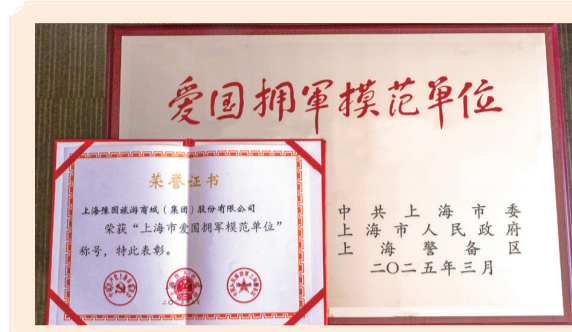 爱国拥軍模范单位
中共上海市委
上海市人民政府
上海警备区
二〇二五年三月
荣誉证书
上海豫园旅游商城（集团）股份有限公司
荣获“上海市爱国拥军模范单位”
称号，特此表彰。